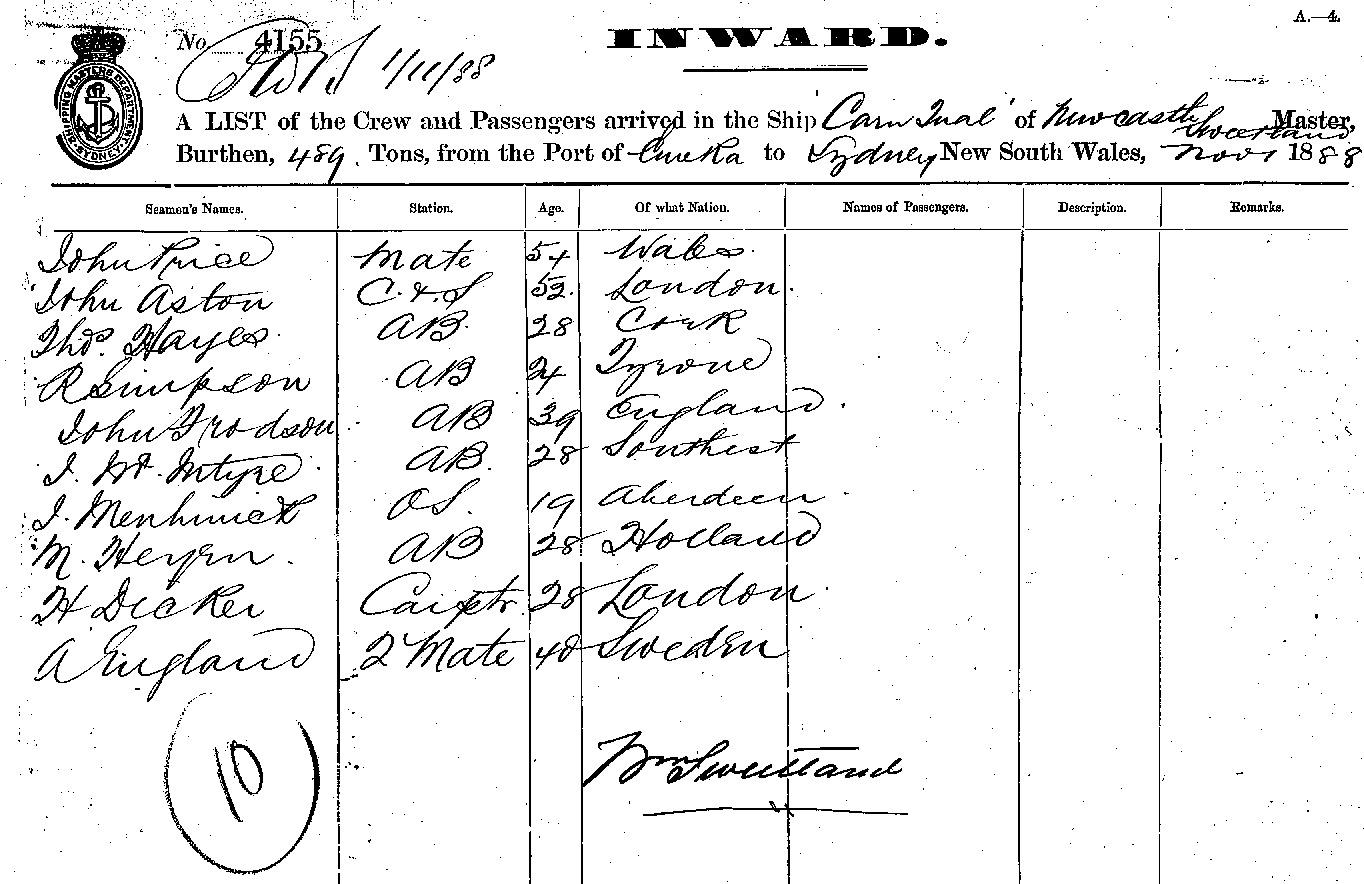 A.—4.
No. 4155
INWARD.
1/11/88
SHIPPING MASTERS DEPARTMENT SYDNEY
A LIST of the Crew and Passengers arrived in the Ship 'Carn Tual' of Newcastle Sweetland Master,
Burthen, 489 Tons, from the Port of Eureka to Sydney New South Wales, Nov 1 1888
Seamen's Names. Station. Age. Of what Nation. Names of Passengers. Description. Remarks.
John Price Mate 54 Wales
John Aston C. & S 52 London.
Thos. Hayes AB. 28 Cork
R Simpson AB 24 Tyrone
John Frodson AB 39 England.
J. Mt. Intyre AB. 28
J. Menhinick OS. 19 Aberdeen
M. Heyrn. AB 28 Holland
H Dicker Carptr 28 London
A England 2 Mate 40 Sweden
10
Wm Sweetland